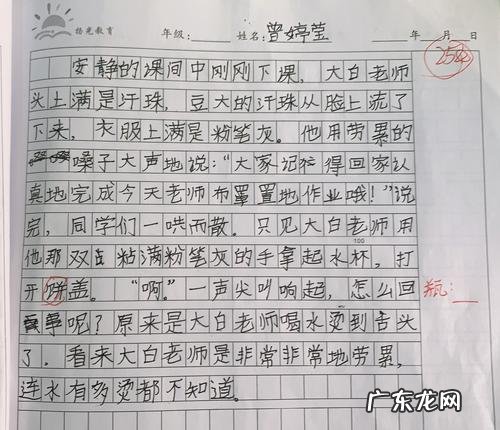 扬光教育
年级: 姓名: 曾婷莹 年 月 日
安静的课间中刚刚下课，大白老师
头上满是汗珠，豆大的汗珠从脸上流了
下来，衣服上满是粉笔灰。他用劳累的
嗓子大声地说：“大家记得回家认
真地完成今天老师布置地作业哦！”说
完，同学们一哄而散。只见大白老师用
他那双粘满粉笔灰的手拿起水杯，打
100
开饼盖。“啊。”一声尖叫响起，怎么回
事呢？原来是大白老师喝水烫到舌头
了。看来大白老师是非常非常地劳累，
连水有多烫都不知道。
瓶:
广东龙网